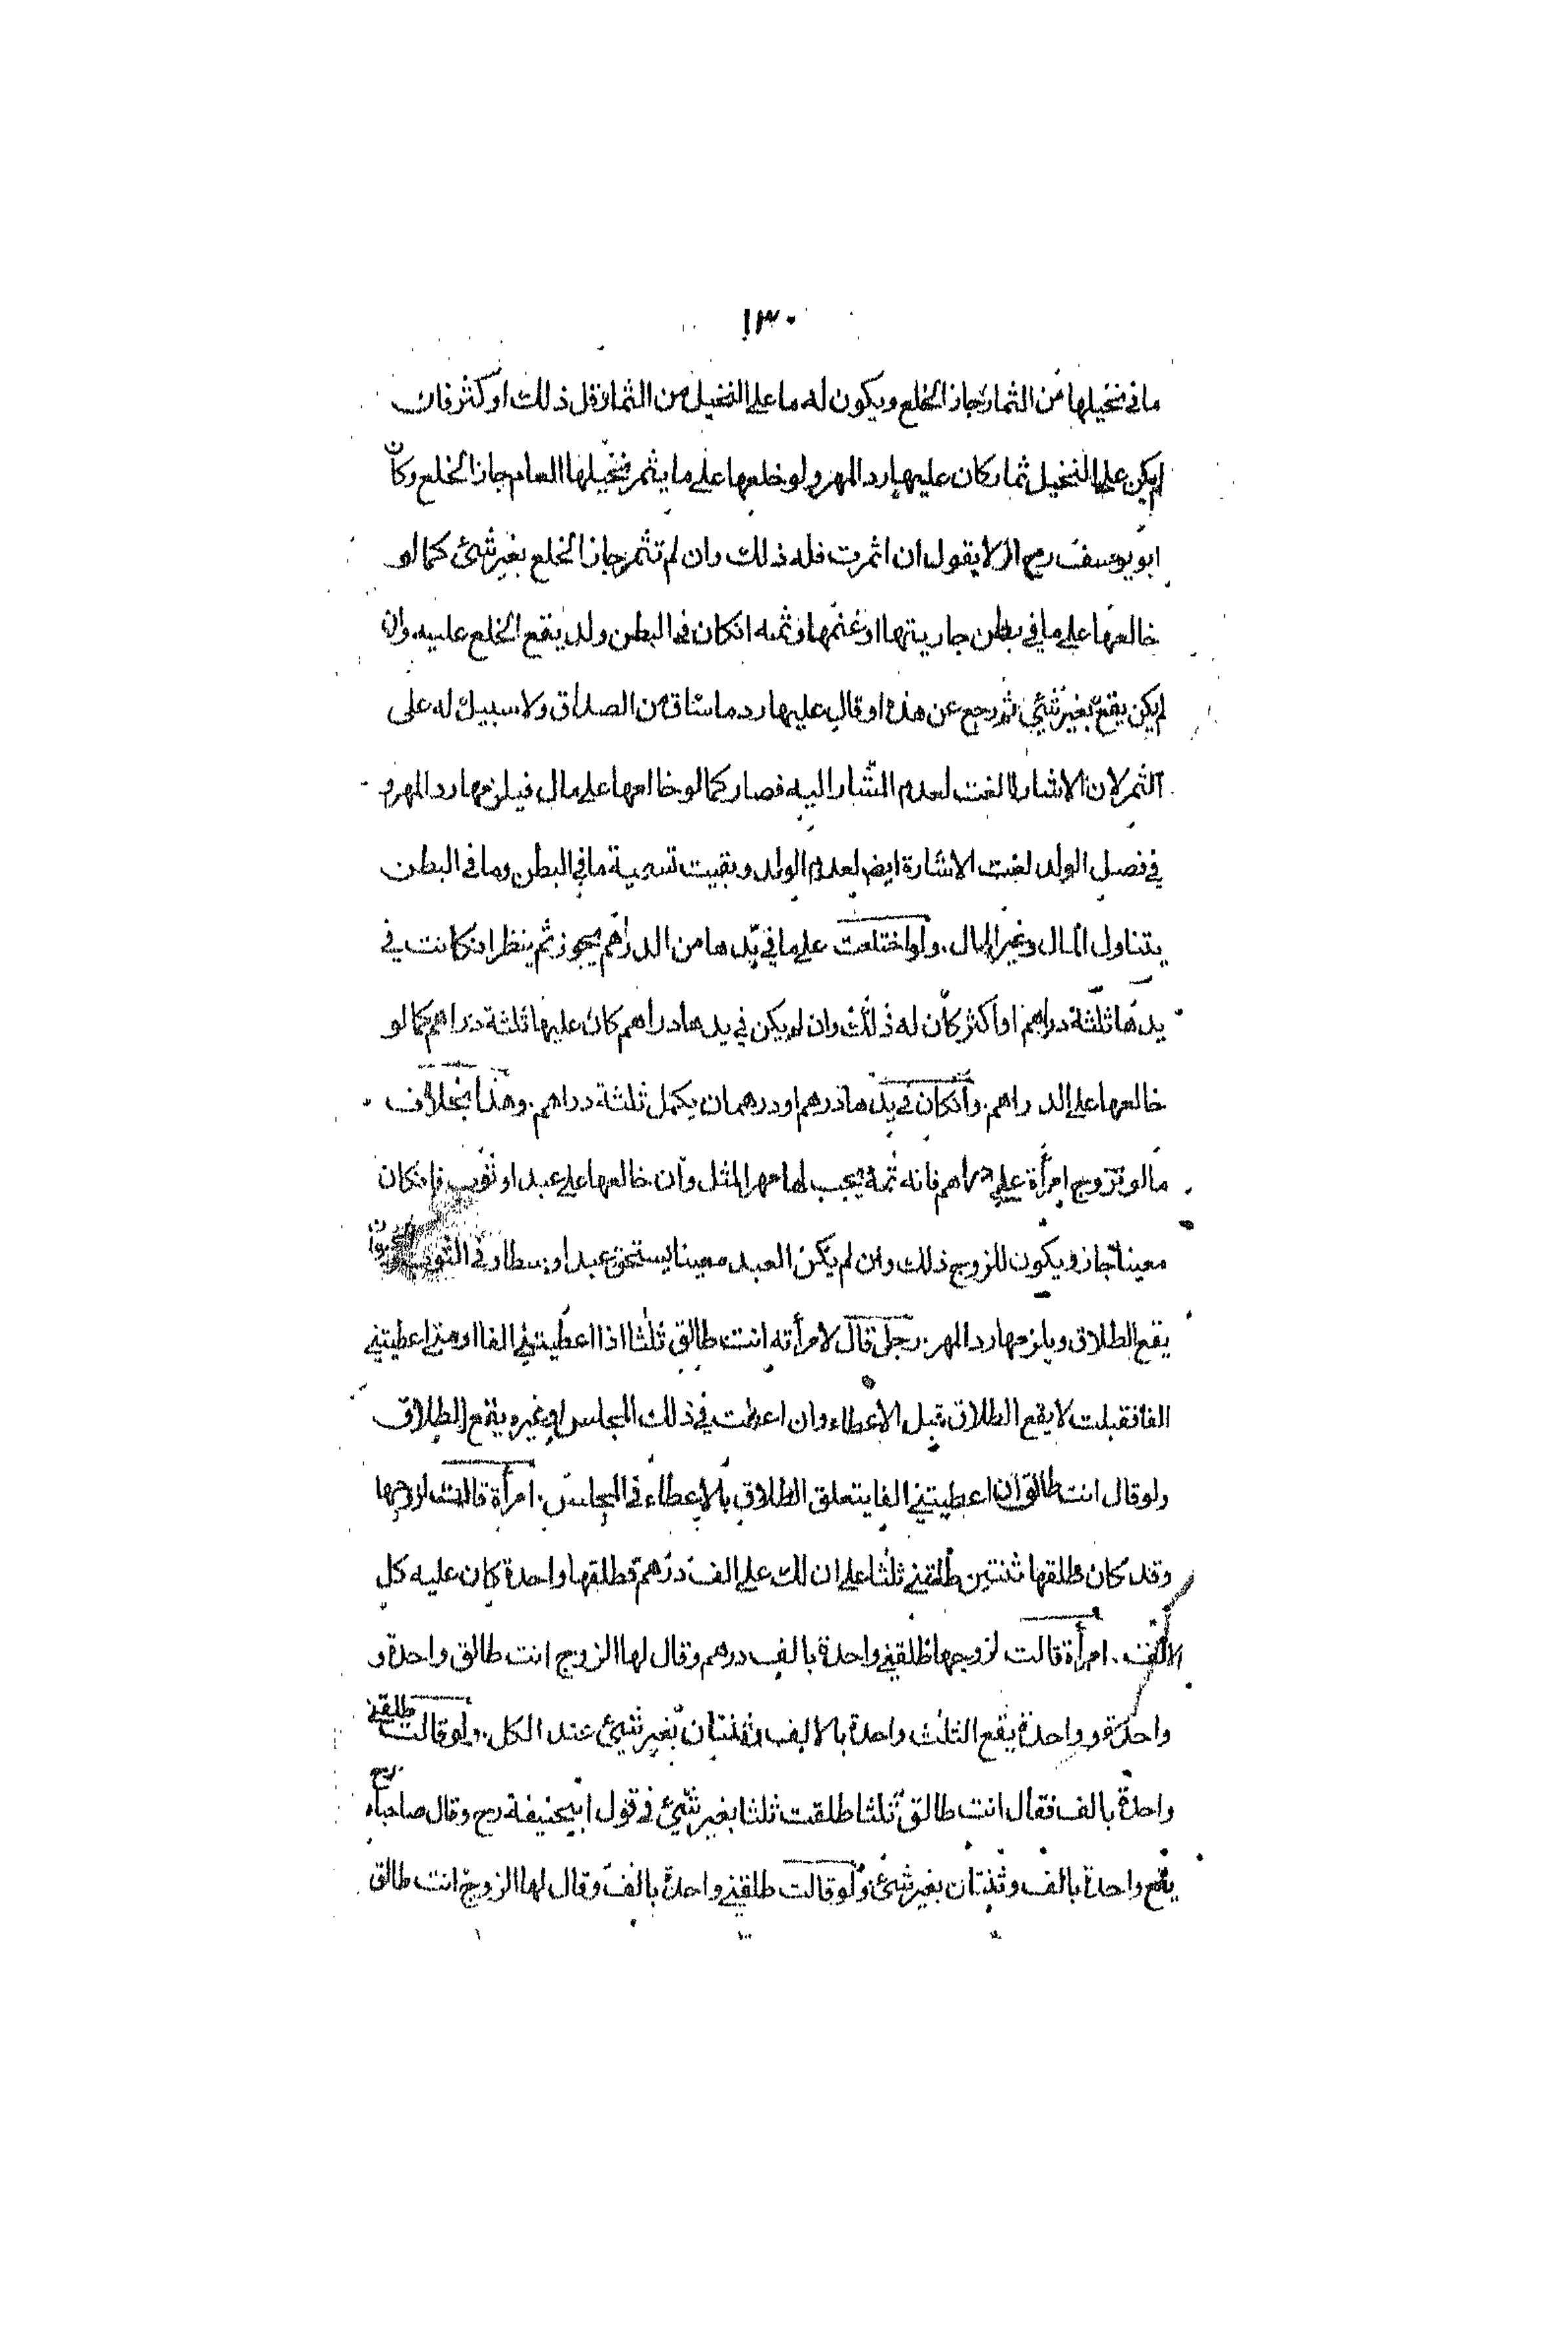 ١٣٠
ما في نخيلها من الثمار جاز الخلع ويكون له ما على النخيل من الثمار قل ذلك او كثر فان
لم يكن على النخيل ثمار كان عليها رد المهر ولو خلعها على ما يثمر نخيلها العام جاز الخلع وكان
ابو يوسف رح اولا يقول ان اثمرت فله ذلك وان لم تثمر جاز الخلع بغير شئ كما لو
خالعها على ما في بطن جاريتها او غنمها وثمه انكان في البطن ولد يقع الخلع عليه وان
لم يكن يقع بغير شئ ثم رجع عن هذا وقال عليها رد ما ساق من الصداق ولا سبيل له على
الثمر لان الاشارة لغت لعدم المشار اليه فصار كما لو خالعها على مال فيلزمها رد المهر و
في فصل الولد لغت الاشارة ايضا لعدم الولد وبقيت تسمية ما في البطن وما في البطن
يتناول المال وغير المال. ولو اختلعت على ما في يدها من الدراهم يجوز ثم ينظر انكانت في
يدها ثلثة دراهم او اكثر كان له ذلك وان لم يكن في يدها دراهم كان عليها ثلثة دراهم كما لو
خالعها على الدراهم. وانكان في يدها درهم او درهمان يكمل ثلثة دراهم. وهذا بخلاف
ما لو تزوج امرأة على دراهم فانه ثمة يجب لها مهر المثل وان خالعها على عبد او ثوب فانكان
معينا جاز ويكون للزوج ذلك وان لم يكن العبد معينا يستحق عبدا وسطا وفي الثوب
يقع الطلاق ويلزمها رد المهر. رجل قال لامرأته انت طالق ثلثا اذا اعطيتني الفا او متى اعطيتني
الفا فقبلت لا يقع الطلاق قبل الاعطاء وان اعطت في ذلك المجلس او غيره يقع الطلاق
ولو قال انت طالق ان اعطيتني الفا يتعلق الطلاق بالاعطاء في المجلس. امرأة قالت لزوجها
وقد كان طلقها ثنتين طلقني ثلثا على ان لك على الف درهم فطلقها واحدة كان عليه كل
الالف. امرأة قالت لزوجها طلقني واحدة بالف درهم وقال لها الزوج انت طالق واحدة و
واحدة وواحدة يقع الثلث واحدة بالالف وثنتان بغير شئ عند الكل. ولو قالت طلقني
واحدة بالف فقال انت طالق ثلثا طلقت ثلثا بغير شئ في قول ابيحنيفة رح وقال صاحباه رح
يقع واحدة بالف وثنتان بغير شئ ولو قالت طلقني واحدة بالف وقال لها الزوج انت طالق